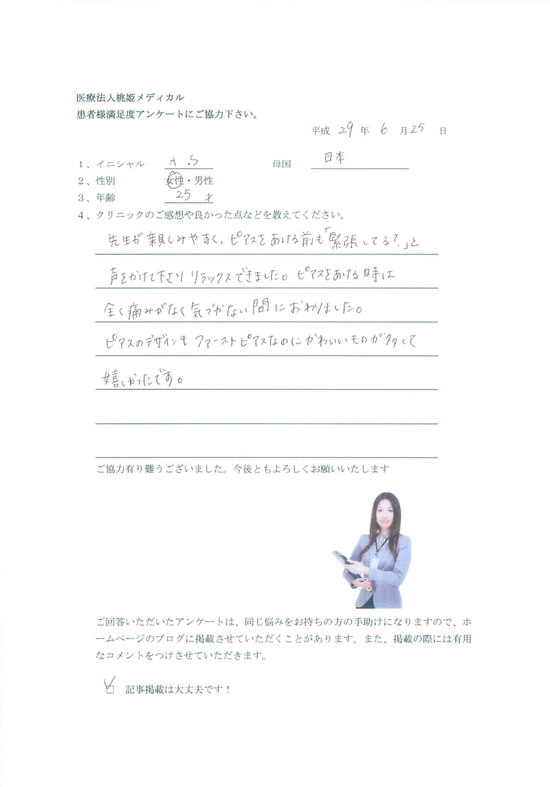 医療法人桃姫メディカル
患者様満足度アンケートにご協力下さい。
平成 29 年 6 月 25 日
1、イニシャル A.S 母国 日本
2、性別 女性・男性
3、年齢 25 才
4、クリニックのご感想や良かった点などを教えてください。
先生が親しみやすく、ピアスをあける前も「緊張してる?」と
声をかけて下さり リラックスできました。ピアスをあける時は
全く痛みがなく気づかない間におわりました。
ピアスのデザインも ファーストピアスなのにかわいいものが多くて
嬉しかったです。
ご協力有り難うございました。今後ともよろしくお願いいたします
ご回答いただいたアンケートは、同じ悩みをお持ちの方の手助けになりますので、ホ
ームページのブログに掲載させていただくことがあります。また、掲載の際には有用
なコメントをつけさせていただきます。
記事掲載は大丈夫です！